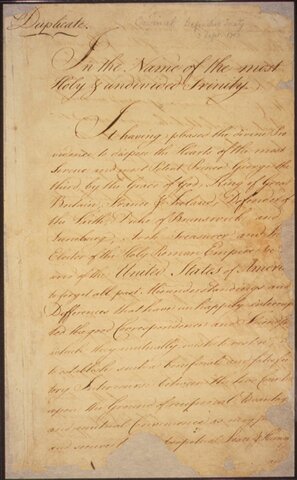 Duplicate.
Definitive Treaty
Sept. 1783
In the Name of the most
Holy & undivided Trinity.
It having pleased the divine Pro
vidence to dispose the Hearts of the most
Serene and most Potent Prince George the
third, by the Grace of God, King of Great
Britain, France & Ireland, Defender of
the Faith, Duke of Brunswick and
Lunebourg, Arch Treasurer and Prince
Elector of the Holy Roman Empire &c.
and of the United States of America
to forget all past Misunderstandings and
Differences that have unhappily interrup
ted the good Correspondence and Friendship
which they mutually wish to restore;
to establish such a beneficial and satisfac
tory Intercourse between the two Countries
upon the Ground of reciprocal Advantages
and mutual Convenience as may promote
and secure to both perpetual Peace & Harmony